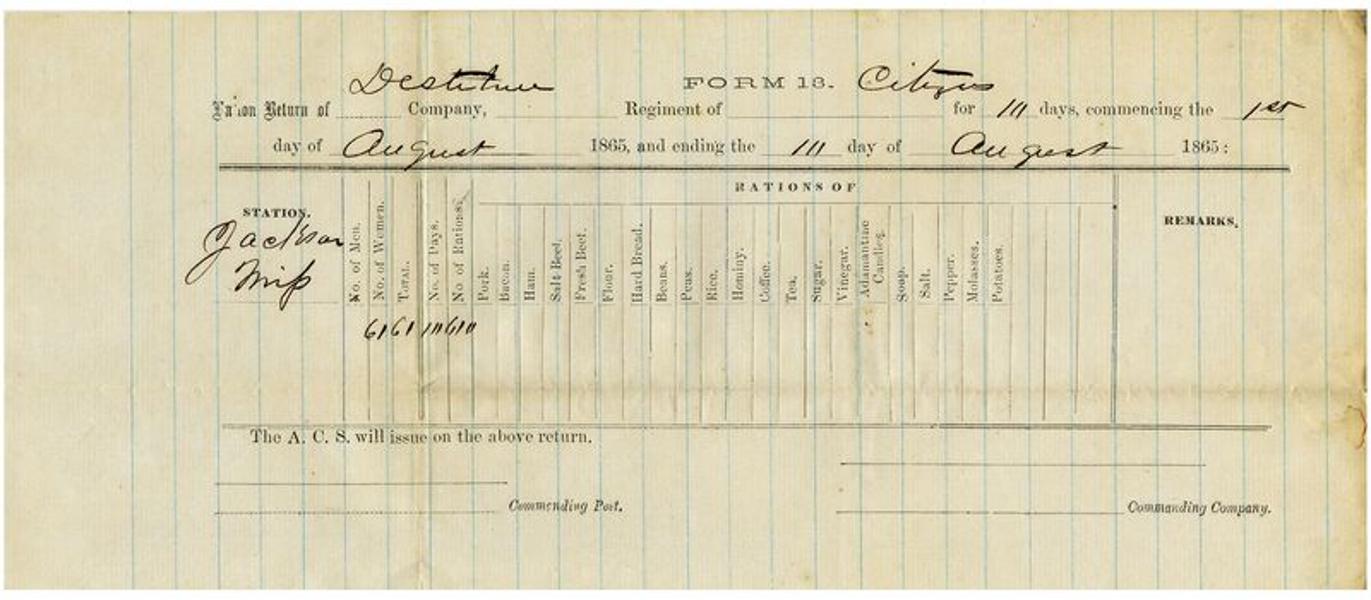 Destitute FORM 13. Citizens
Ration Return of Company, Regiment of for 10 days, commencing the 1st
day of August 1865, and ending the 10 day of August 1865:
RATIONS OF
STATION.
Jackson
Miss
No. of Men.
No. of Women.
TOTAL.
No. of Days.
No. of Rations.
Pork.
Bacon.
Ham.
Salt Beef.
Fresh Beef.
Flour.
Hard Bread.
Beans.
Peas.
Rice.
Hominy.
Coffee.
Tea.
Sugar.
Vinegar.
Adamantine
Candles.
Soap.
Salt.
Pepper.
Molasses.
Potatoes.
REMARKS.
61 61 10 610
The A. C. S. will issue on the above return.
Commending Post.
Commanding Company.